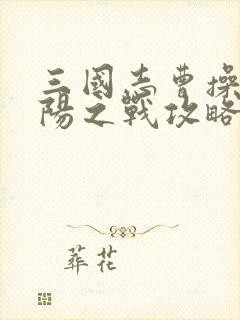 三國志曹操
陽之戰攻略
葬花